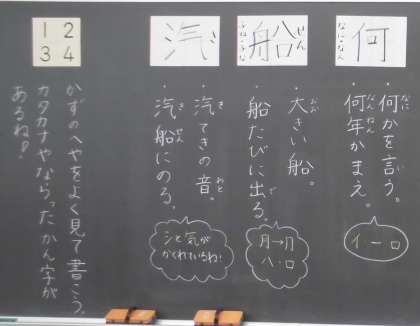 なに・なん
何
・何かを言う。
・何年かまえ。
イ 一 口
せん
船
ふね・ふな
・大きい船。
・船たびに出る。
八・口
汽
・汽てきの音。
・汽船にのる。
シと気が
かくれているね!
1 2
3 4
かずのへやをよく見て書こう。
カタカナやならったかん字が
あるね!